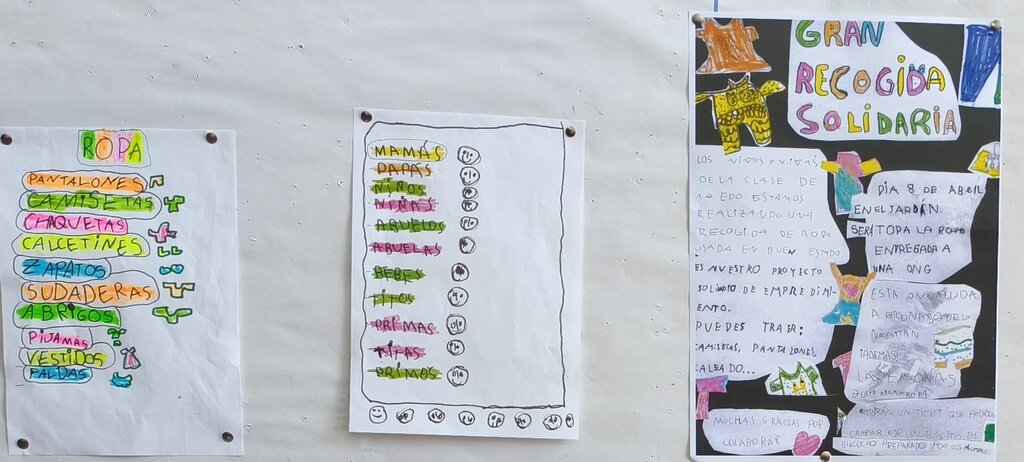 ROPA
PANTALONES
CAMISETAS
CHAQUETAS
CALCETINES
ZAPATOS
SUDADERAS
ABRIGOS
PIJAMAS
VESTIDOS
FALDAS
MAMÁS
PAPÁS
NIÑOS
NIÑAS
ABUELOS
ABUELAS
BEBES
TITOS
PRIMAS
TITAS
PRIMOS
GRAN
RECOGIDA
SOLIDARIA
LOS NIÑOS Y NIÑAS
DE LA CLASE DE
EDO ESTAMOS
REALIZANDO UNA
RECOGIDA DE ROPA
USADA EN BUEN ESTADO
ES NUESTRO PROYECTO
DE EMPRE DIMI-
ENTO.
PUEDES TRAER:
CAMISETAS, PANTALONES,
CALZADO...
MUCHAS GRACIAS POR
COLABORAR
DÍA 8 DE ABRIL
EN EL JARDÍN.
SERÍ TODA LA ROPA
ENTREGADA A
UNA ONG
ESTA ONG AYUDA
A PERSONAS QUE LO
NECESITAN
¡ADEMÁS!
LAS PERSONAS
UN TICKET QUE PODRÁN
CAMBIAR POR UN
BIZCOCHO PREPARADO POR LOS